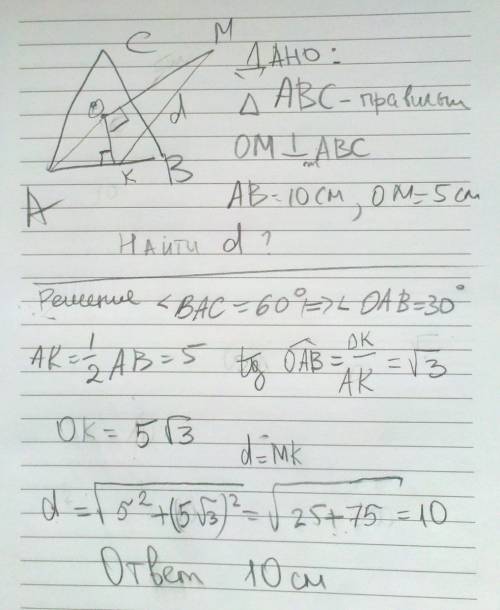 C
M
O
d
A
K
B
Дано:
Δ ABC - правильн
OM ⊥ ABC
AB = 10 см, OM = 5 см
Найти d ?
Решение < BAC = 60° => < OAB = 30°
AK = 1/2 AB = 5 tg OAB = OK/AK = √3
OK = 5√3
d = MK
d = √(5² + (5√3)²) = √(25 + 75) = 10
Ответ 10 см